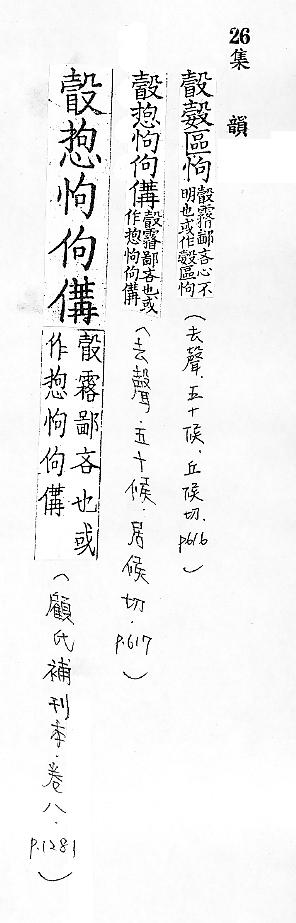 26 集 韻
瞉區怐 瞉霿鄙吝心不
明也或作區怐
(去聲.五十候.丘候切.p616)
瞉怐佝傋 瞉霿鄙吝也或
作怐佝傋
(去聲.五十候.居候切.p.617)
瞉怐佝傋 瞉霿鄙吝也或
作怐佝傋
(顧氏補刊本.卷八.p.1281)